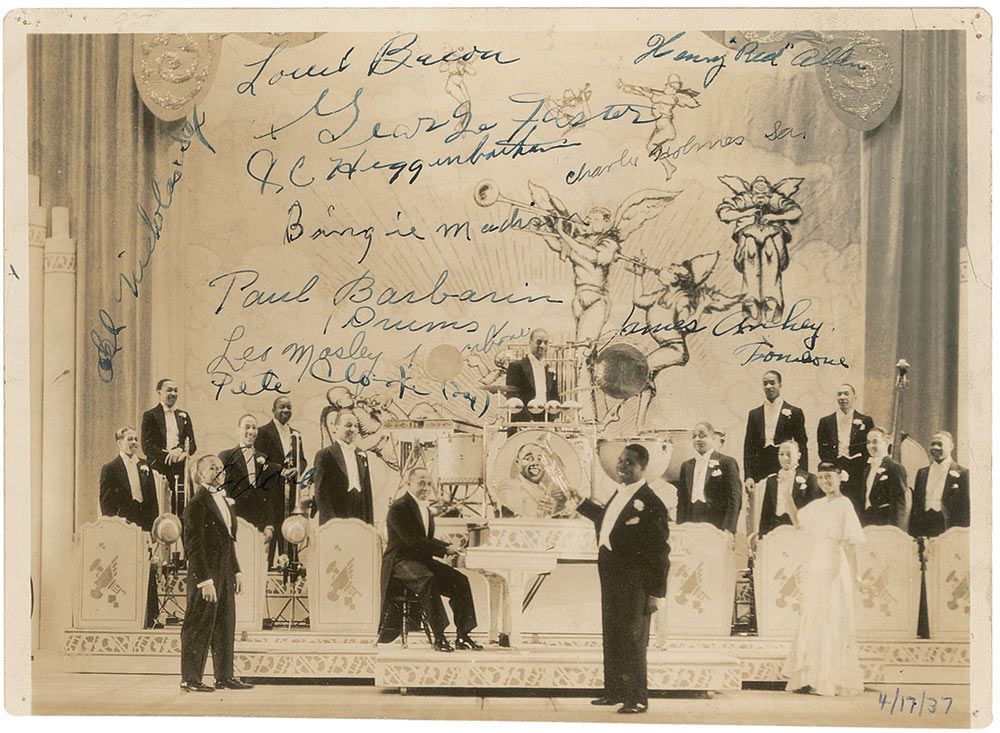 Louis Bacon
Henny "Red" Allen
George Foster
J C Higginbotham
Charlie Holmes Sa.
Bingie Madison
Paul Barbarin
Drums
Leo Mosley
Pete Clark (sax)
James Archey
Trombone
Al Nicholas
4/17/37